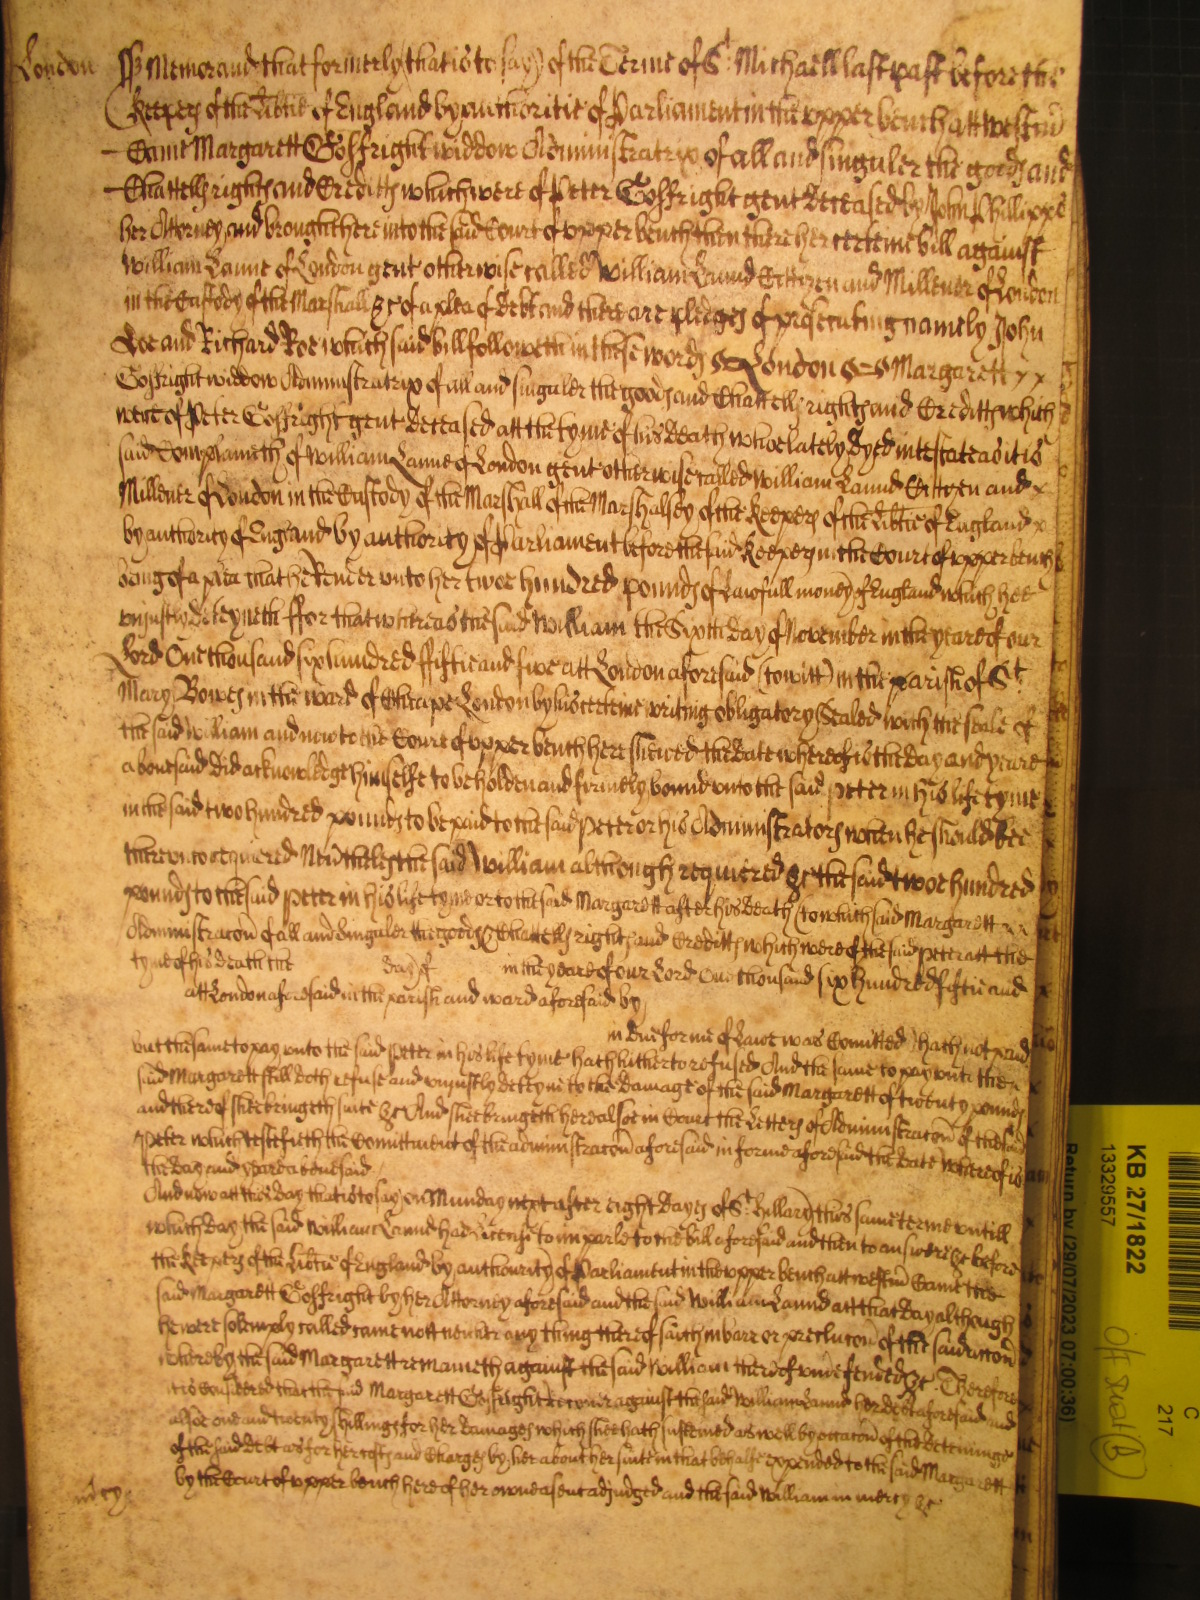 London ss Memorand that formerly (that is to say) of the Terme of St. Michaell last past before the
Keepers of the Libtie of England by authoritie of Parliament in the upper bench att Westm
Came Margarett Gosfright widdow Administratrix of all and singuler the goods and
Chattells rights and Creditts which were of Peter Gosfright gent deceased by John Phillipps
her Attorney and brought here into the said Court of upper bench then there her certeine bill against
William Lanne of London gent otherwise called William Laund Cittizen and Millener of London
in the Custody of the Marshall &c of a plea of debt and there are pledges of prosecuting namely John
Doe and Richard Roe which said bill followeth in these words ss London ss Margarett
Gosfright widdow Administratrix of all and singuler the goods and Chattells rights and Creditts which
were of Peter Gosfright gent deceased att the tyme of his death who lately dyed intestate as it is
said Complaineth of William Lanne of London gent otherwise called William Laund Cittizen and
Millener of London in the Custody of the Marshall of the Marshalsey of the Keepers of the Libtie of England
by authority of England by authority of Parliament before the said Keepers in the Court of upper bench
being of a plea that he Render unto her twoe hundred pounds of Lawfull money of England which hee
unjustly deteyneth ffor that whereas the said William the Sixth day of November in the yeare of our
Lord One thousand six hundred ffiftie and five att London aforesaid (to witt) in the parish of St.
Mary Bowes in the ward of Cheape London by his certeine writing obligatory Sealed with the seale of
the said William and now to the Court of upper bench here shewed the date whereof is the day and yeare
abovesaid did acknowledge himselfe to be holden and firmely bound unto the said Peter in his life tyme
in the said two hundred pounds to be paid to the said Peter or his Administrators when he should bee
thereunto required Nevtheles the said William although required &c the said twoe hundred
pounds to the said Peter in his life tyme or to the said Margarett after his death (to which said Margarett
Administracon of all and Singuler the goods & Chattells rights and Creditts which were of the said Peter att the
tyme of his death the day of in the yeare of our Lord One thousand six hundred fiftie and
att London aforesaid in the parish and ward aforesaid by
in due forme of Lawe was Comitted) hath not paid
but the same to pay unto the said Peter in his life tyme hath hitherto refused And the same to pay unto the
said Margarett still doth refuse and unjustly deteyne to the damage of the said Margarett of twenty pounds
and thereof shee bringeth suite &c And shee bringeth here alsoe in Court the Letters of Administracon of the said
Peter which testifieth the Comittment of the administracon aforesaid in forme aforesaid the date whereof is
the day and yeare abovesaid
And now att this day that is to say on Munday next after eight dayes of St. Hillary this same terme untill
which day the said William Lanne had License to imparle to the bill aforesaid and then to answere &c before
the Keepers of the Libtie of England by authourity of Parliament in the upper bench att Westm Came the
said Margarett Gosfright by her Attorney aforesaid and the said William Laund att that day although
he were solemply called came nott neither any thing thereof saith in barre or preclucon of the said accon
whereby the said Margarett remaineth against the said William thereof undefended &c. Therefore
it is Considered that the said Margarett Gosfright recover against the said William Launde her debt aforesaid and
alsoe one and twenty shillings for her damages which shee hath susteined as well by occacon of the deteininge
of the said debt as for her costs and Charges by her about her suite in that behalfe expended to the said Margarett
by the Court of upper bench here of her owne assent adjudged and the said William in mercy &c
mercy
KB 27/1822
13329557
Return by (29/07/2023 07:00:36)
C
217